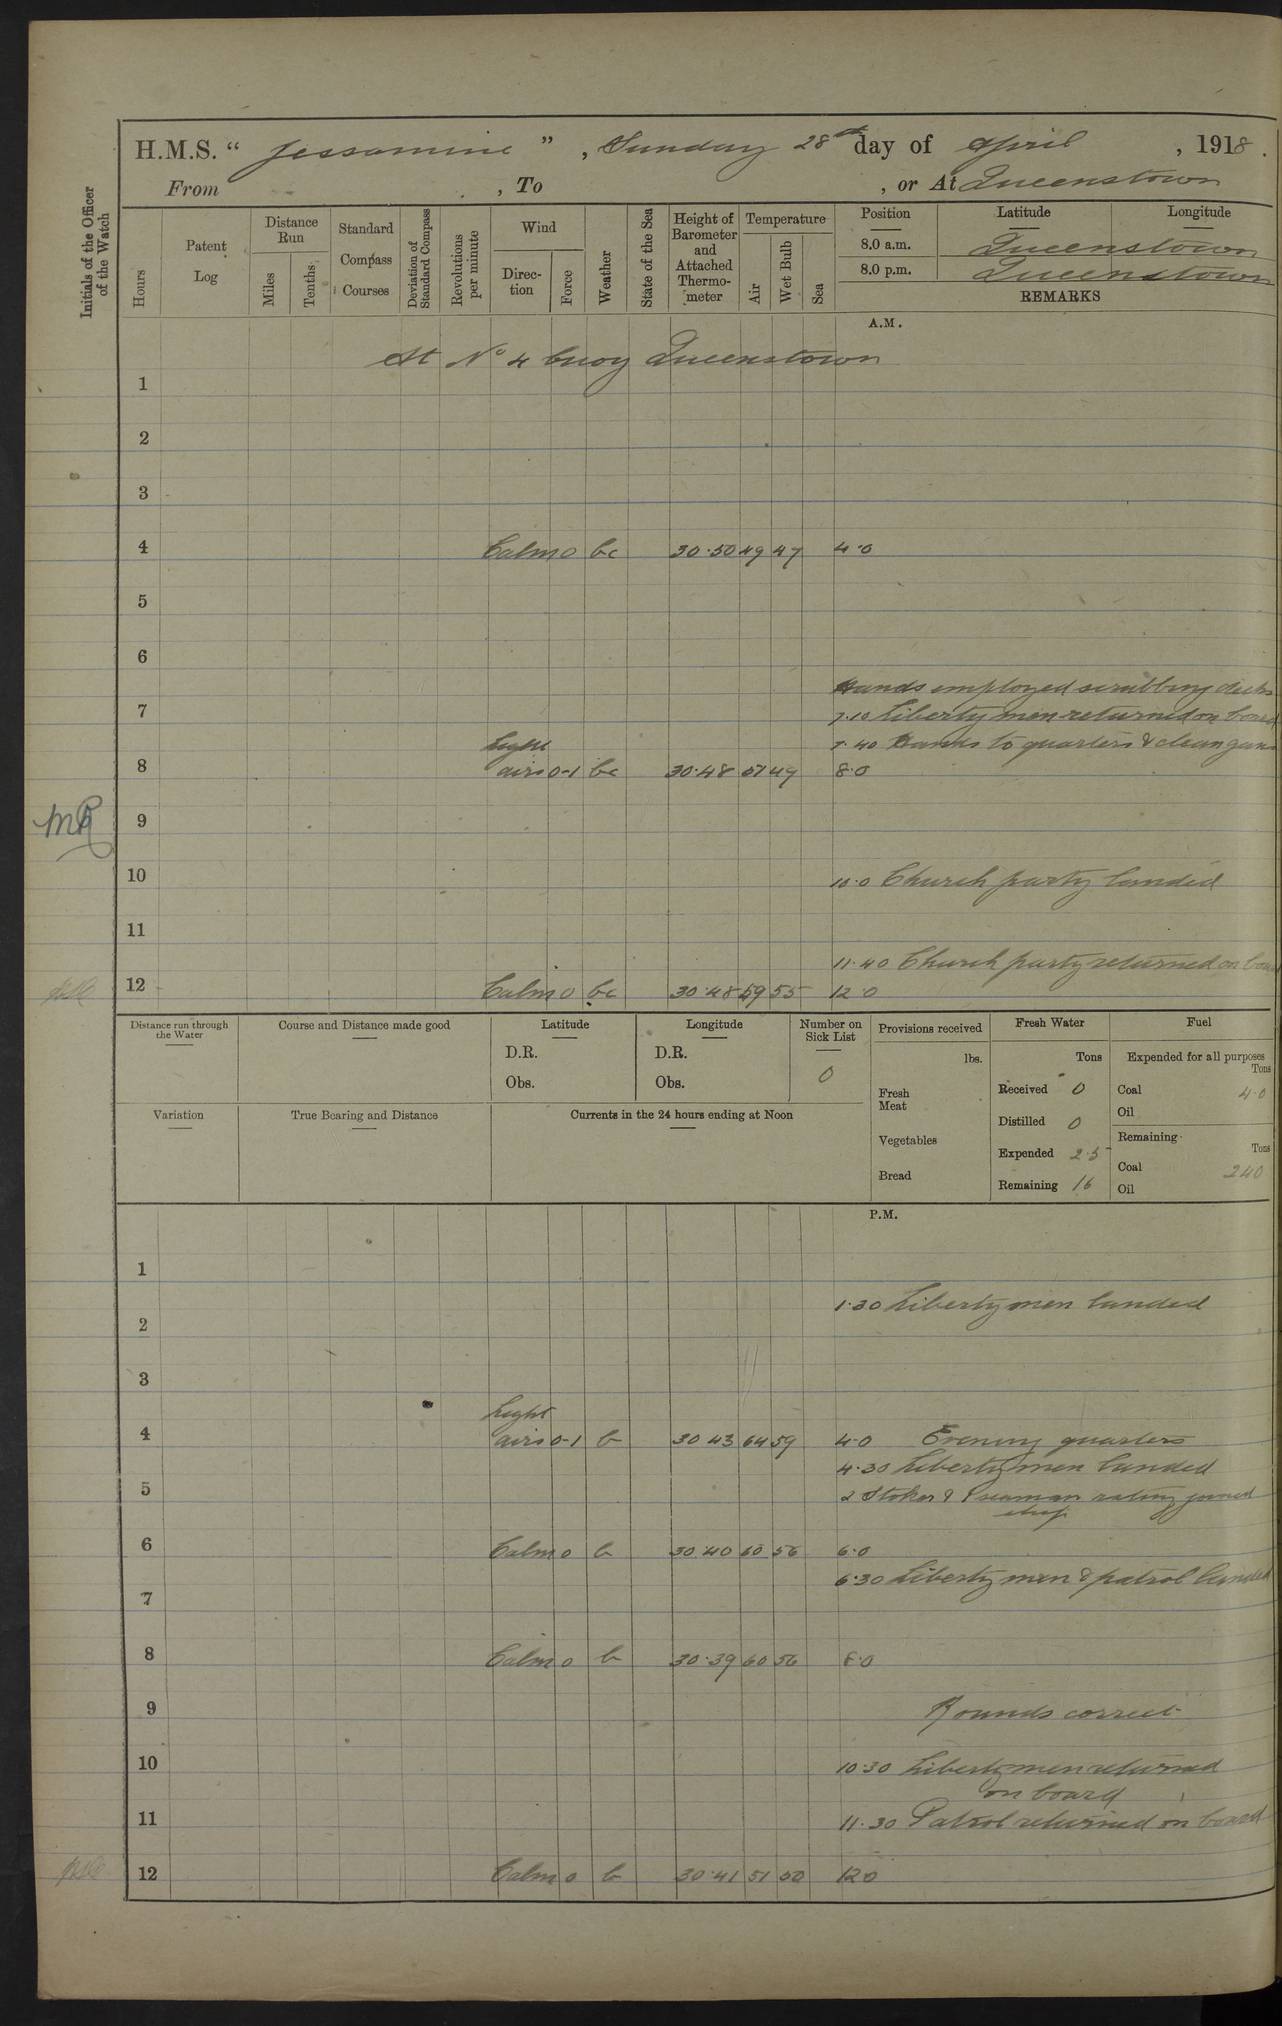 H.M.S. “ Jessamine ” , Sunday 28th day of April , 1918 .
From , To , or At Queenstown
Initials of the Officer of the Watch
Hours
Patent Log
Distance Run
Miles
Tenths
Standard Compass Courses
Deviation of Standard Compass
Revolutions per minute
Wind
Direc-tion
Force
Weather
State of the Sea
Height of Barometer and Attached Thermo-meter
Temperature
Air
Wet Bulb
Sea
Position Latitude Longitude
8.0 a.m. Queenstown
8.0 p.m. Queenstown
REMARKS
A.M.
At No 4 buoy Queenstown
1
2
3
4 Calm 0 bc 30.50 49 47 4.0
5
6
Hands employed scrubbing decks
7 7.10 Liberty men returned on board
Light 7.40 Hands to quarters & clean guns
8 airs 0-1 bc 30.48 57 49 8.0
9
10 10.0 Church party landed
11
11.40 Church party returned on board
12 Calm 0 bc 30.48 59 55 12.0
Distance run through the Water
Course and Distance made good
Latitude
D.R.
Obs.
Longitude
D.R.
Obs.
Number on Sick List
0
Provisions received
lbs.
Fresh Meat
Vegetables
Bread
Fresh Water
Tons
Received 0
Distilled 0
Expended 2.5
Remaining 16
Fuel
Expended for all purposes
Tons
Coal 4.0
Oil
Remaining
Tons
Coal 240
Oil
Variation
True Bearing and Distance
Currents in the 24 hours ending at Noon
P.M.
1
1.30 Liberty men landed
2
3
Light
4 airs 0-1 b 30 43 64 59 4.0 Evening quarters
4.30 Liberty men landed
5 2 Stoker & 1 seaman rating joined
ship
6 Calm 0 b 30 40 60 56 6.0
6.30 Liberty men & patrol landed
7
8 Calm 0 b 30.39 60 56 8.0
9 Rounds correct
10 10.30 Liberty men returned
on board
11 11.30 Patrol returned on board
12 Calm 0 b 30.41 51 50 12.0